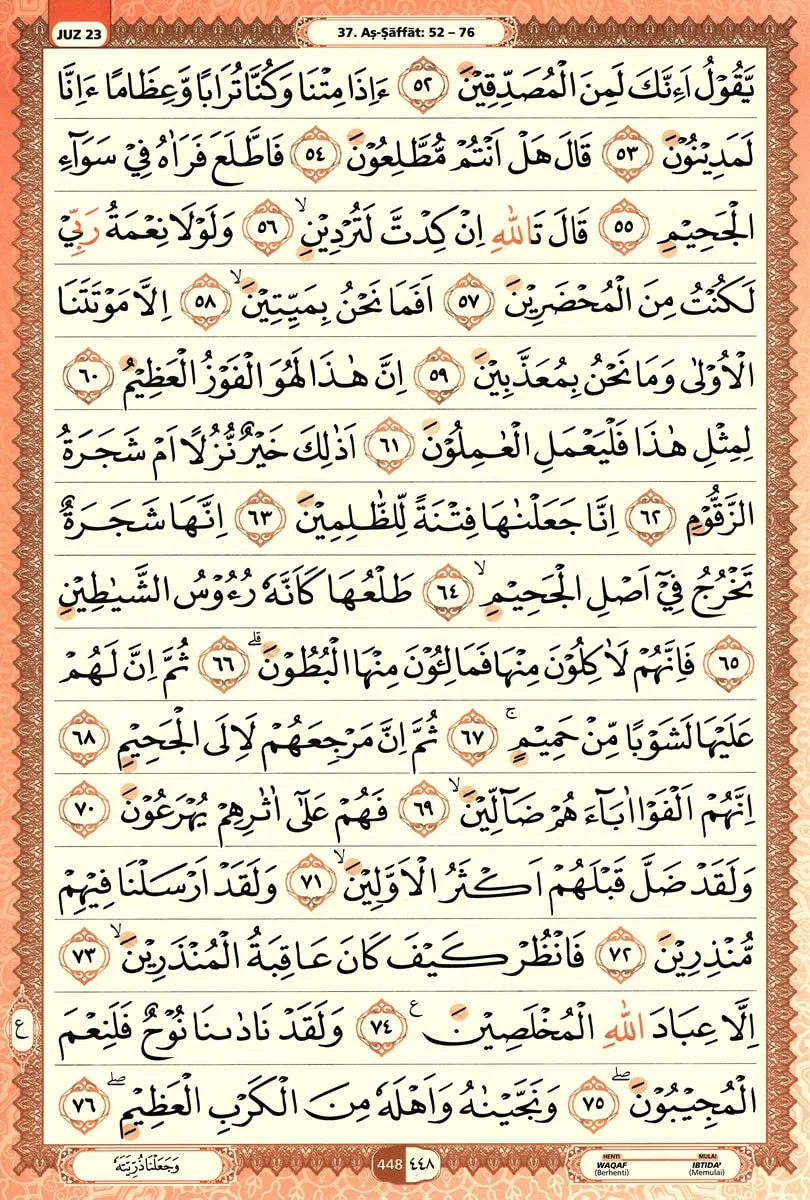 JUZ 23
37. Aṣ-Ṣāffāt: 52 – 76
يَّقُوْلُ اَءِنَّكَ لَمِنَ الْمُصَدِّقِيْنَ ٥٢ ءَاِذَا مِتْنَا وَكُنَّا تُرَابًا وَّعِظَامًا ءَاِنَّا
لَمَدِيْنُوْنَ ٥٣ قَالَ هَلْ اَنْتُمْ مُّطَّلِعُوْنَ ٥٤ فَاطَّلَعَ فَرَاٰهُ فِيْ سَوَاۤءِ
الْجَحِيْمِ ٥٥ قَالَ تَاللّٰهِ اِنْ كِدْتَّ لَتُرْدِيْنِ ۙ ٥٦ وَلَوْلَا نِعْمَةُ رَبِّيْ
لَكُنْتُ مِنَ الْمُحْضَرِيْنَ ٥٧ اَفَمَا نَحْنُ بِمَيِّتِيْنَ ۙ ٥٨ اِلَّا مَوْتَتَنَا
الْاُوْلٰى وَمَا نَحْنُ بِمُعَذَّبِيْنَ ٥٩ اِنَّ هٰذَا لَهُوَ الْفَوْزُ الْعَظِيْمُ ٦٠
لِمِثْلِ هٰذَا فَلْيَعْمَلِ الْعٰمِلُوْنَ ٦١ اَذٰلِكَ خَيْرٌ نُّزُلًا اَمْ شَجَرَةُ
الزَّقُّوْمِ ٦٢ اِنَّا جَعَلْنٰهَا فِتْنَةً لِّلظّٰلِمِيْنَ ٦٣ اِنَّهَا شَجَرَةٌ
تَخْرُجُ فِيْٓ اَصْلِ الْجَحِيْمِ ۙ ٦٤ طَلْعُهَا كَاَنَّهٗ رُءُوْسُ الشَّيٰطِيْنِ
٦٥ فَاِنَّهُمْ لَاٰكِلُوْنَ مِنْهَا فَمَالِـُٔوْنَ مِنْهَا الْبُطُوْنَ ۗ ٦٦ ثُمَّ اِنَّ لَهُمْ
عَلَيْهَا لَشَوْبًا مِّنْ حَمِيْمٍ ۚ ٦٧ ثُمَّ اِنَّ مَرْجِعَهُمْ لَاِلَى الْجَحِيْمِ ٦٨
اِنَّهُمْ اَلْفَوْا اٰبَاۤءَهُمْ ضَاۤلِّيْنَ ۙ ٦٩ فَهُمْ عَلٰٓى اٰثٰرِهِمْ يُهْرَعُوْنَ ٧٠
وَلَقَدْ ضَلَّ قَبْلَهُمْ اَكْثَرُ الْاَوَّلِيْنَ ۙ ٧١ وَلَقَدْ اَرْسَلْنَا فِيْهِمْ
مُّنْذِرِيْنَ ٧٢ فَانْظُرْ كَيْفَ كَانَ عَاقِبَةُ الْمُنْذَرِيْنَ ۙ ٧٣
اِلَّا عِبَادَ اللّٰهِ الْمُخْلَصِيْنَ ࣖ ٧٤ وَلَقَدْ نَادٰىنَا نُوْحٌ فَلَنِعْمَ
ع
الْمُجِيْبُوْنَ ۖ ٧٥ وَنَجَّيْنٰهُ وَاَهْلَهٗ مِنَ الْكَرْبِ الْعَظِيْمِ ۖ ٧٦
وَجَعَلْنَا ذُرِّيَّتَهٗ
448 ٤٤٨
HENTI WAQAF (Berhenti)
MULAI IBTIDA' (Memulai)